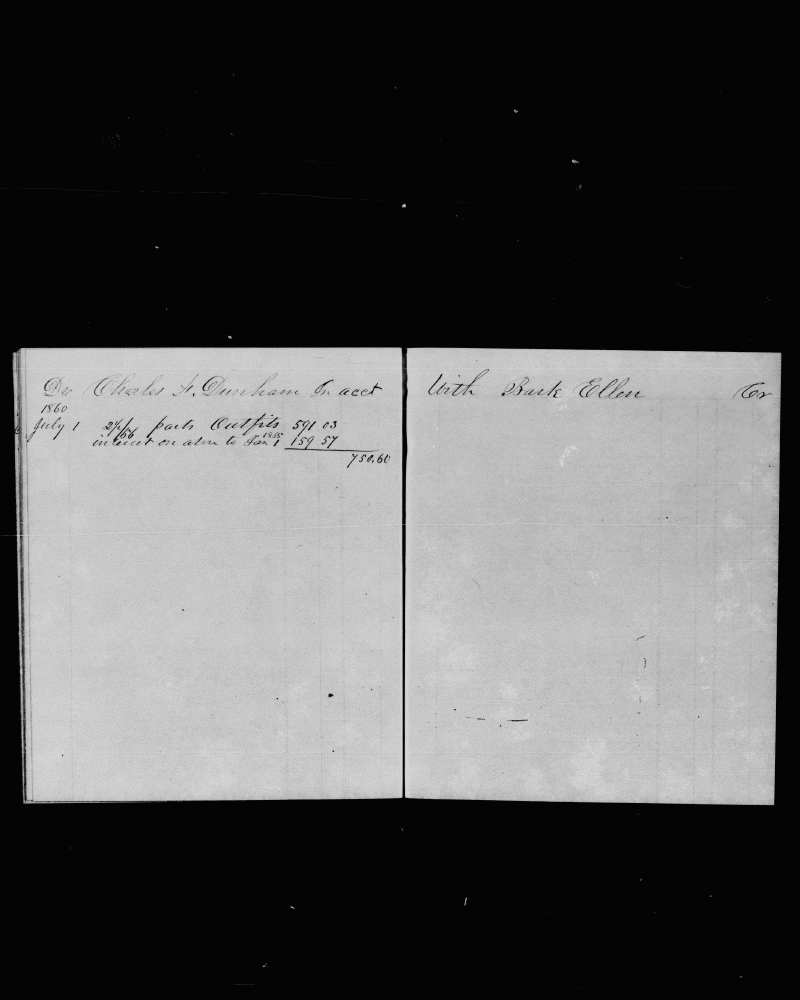 Dr Charles F. Dunham In acct With Bark Ellen Cr
1860
July 1 2½/56 parts Outfits 591 03
interest on above to Jan 1 1865 159 57
750.60